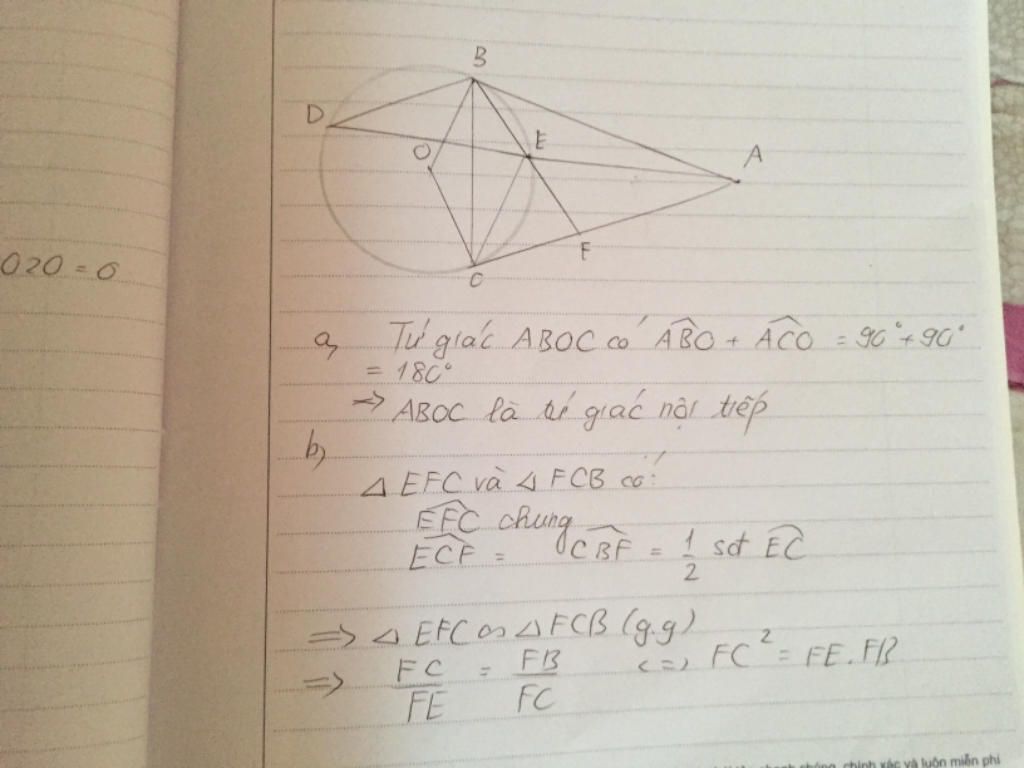 B
D
E
O
A
F
C
020 = 0
a, Tứ giác ABOC có \(\widehat{ABO}\) + \(\widehat{ACO}\) = 90° + 90°
= 180°
=> ABOC là tứ giác nội tiếp
b)
△ EFC và △ FCB có:
\(\widehat{EFC}\) chung
\(\widehat{ECF}\) = \(\widehat{CBF}\) = \(\frac{1}{2}\) sđ \(\widehat{EC}\)
=> △ EFC ∽ △ FCB (g.g)
=> \(\frac{FC}{FE}\) = \(\frac{FB}{FC}\) <=> FC² = FE.FB
chính xác và luôn miễn phí